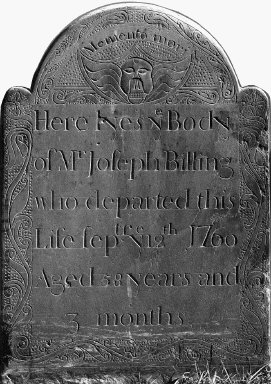 Memento mori
Here lyes yᵉ Body
of Mʳ Joseph Billing
who departed this
Life sepᵗ yᵉ 12ᵗʰ 1760
Aged 58 years and
3 months